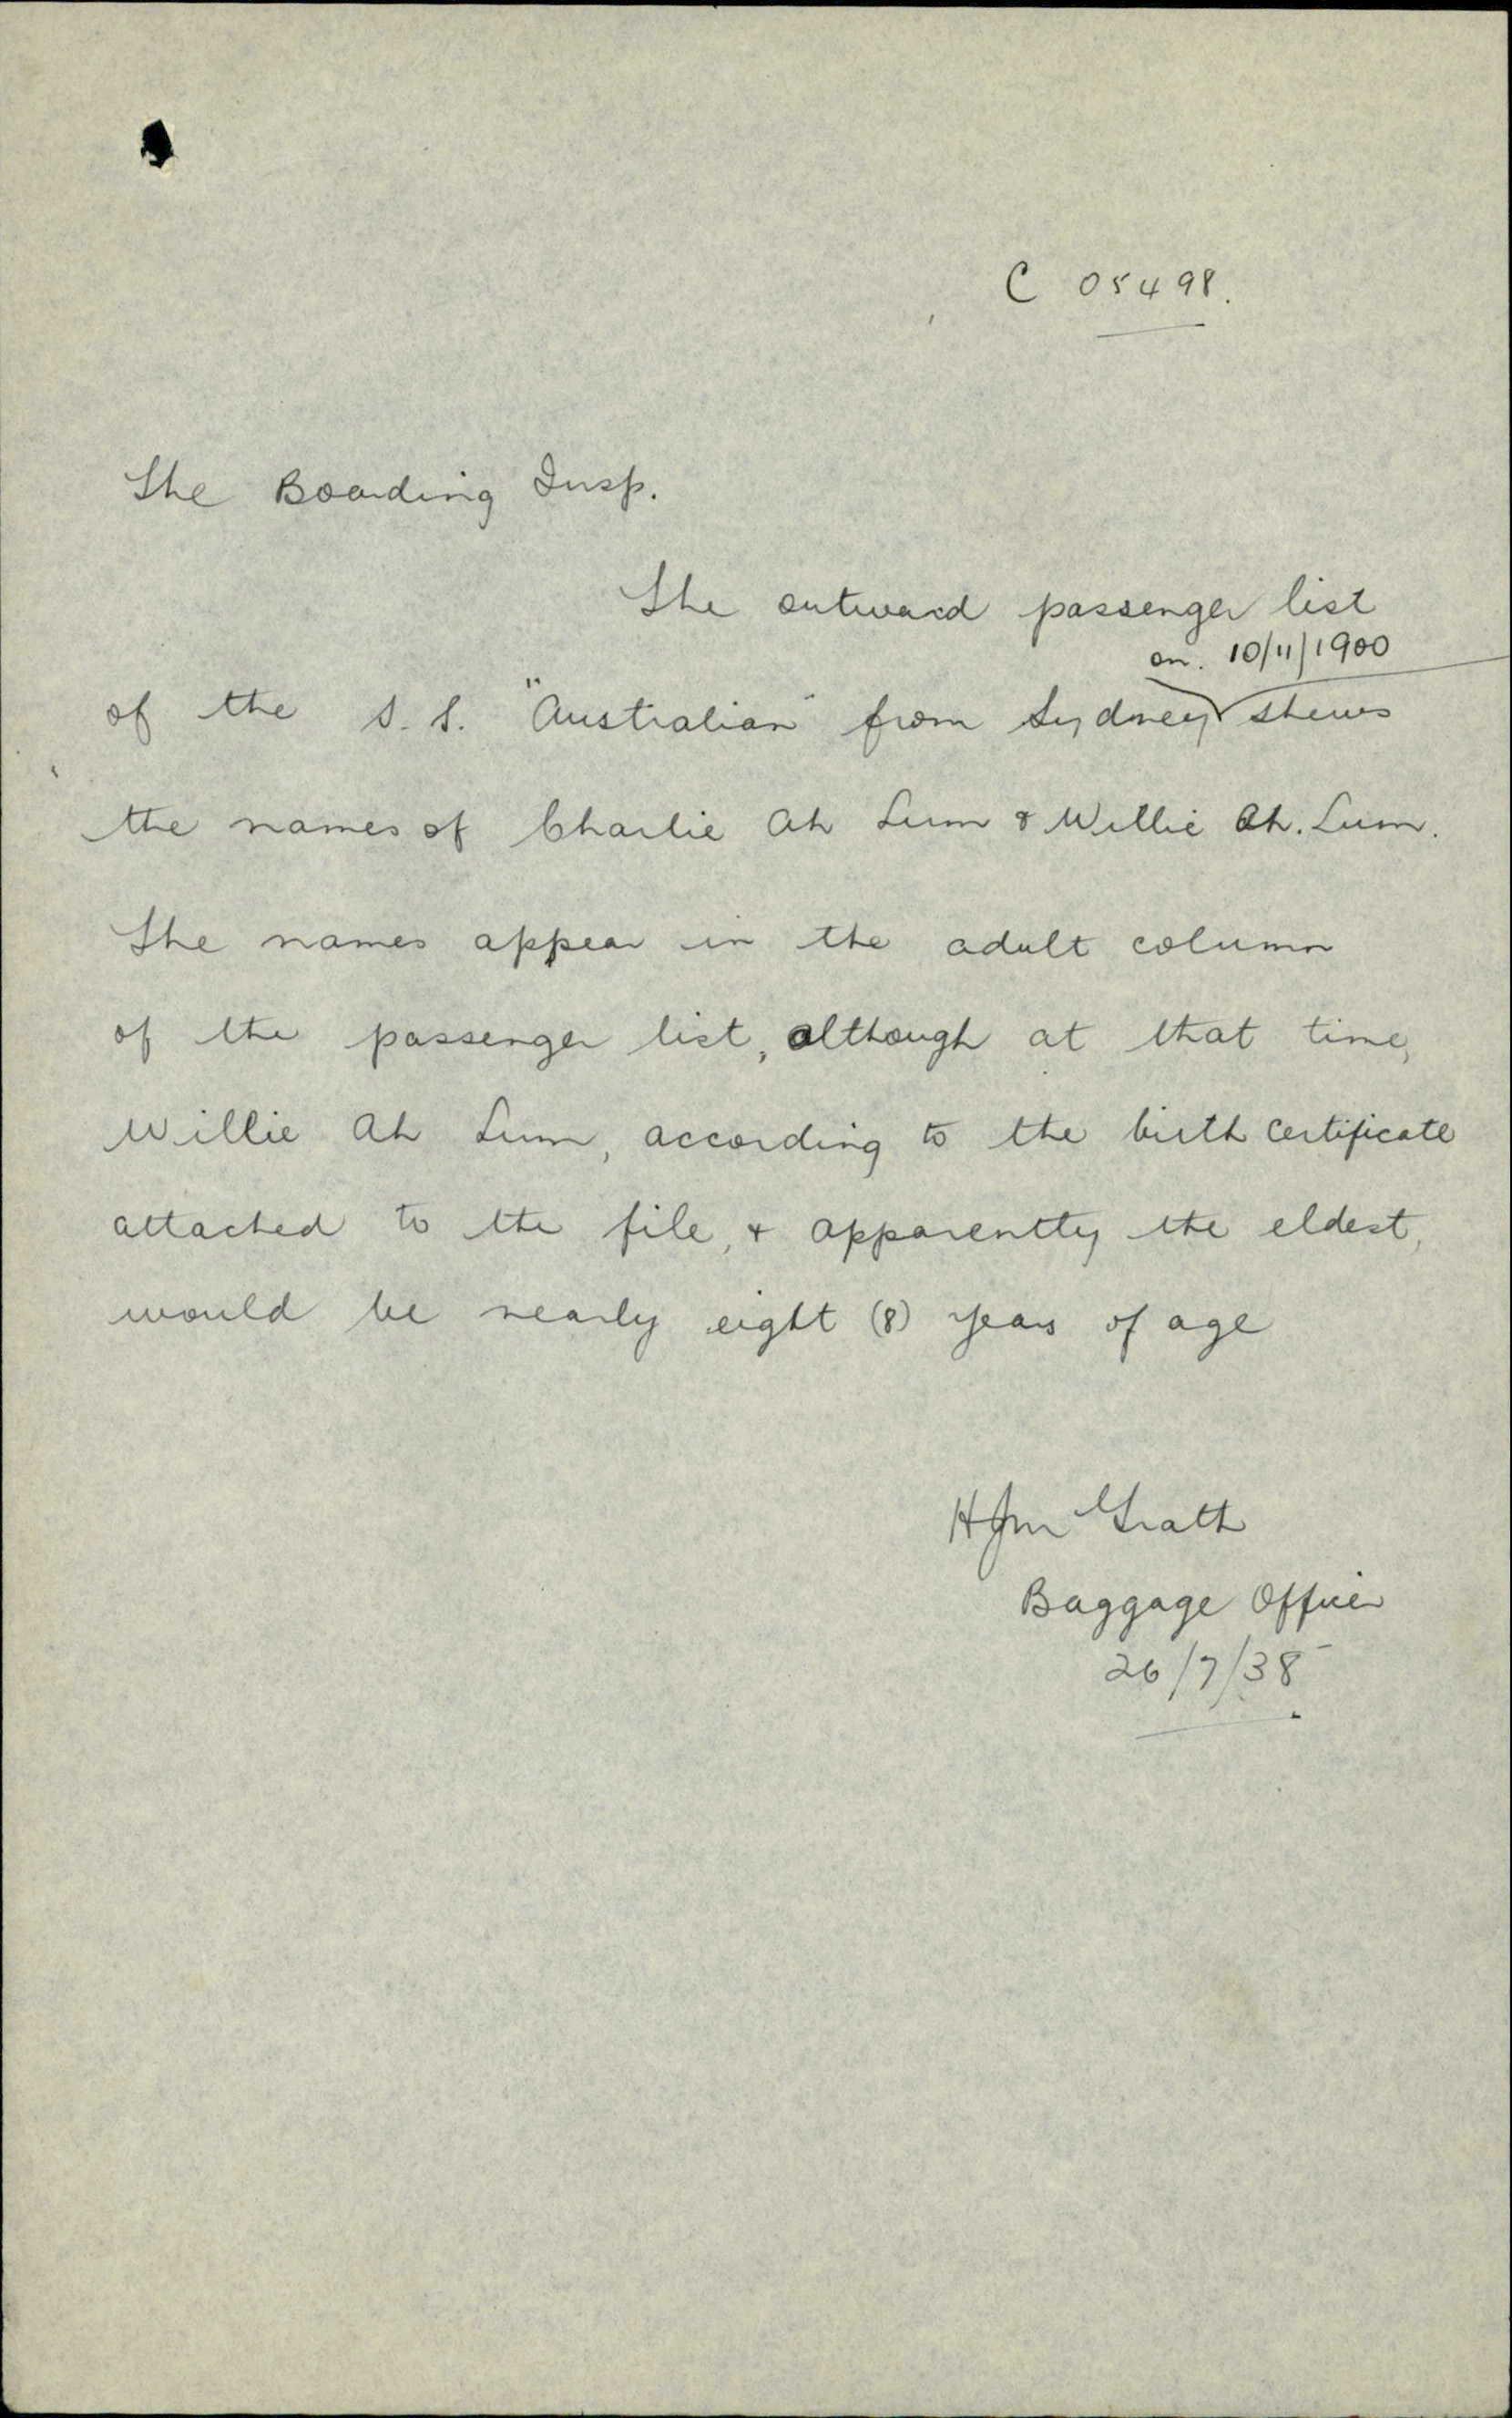 C 05498.
The Boarding Insp.
The outward passenger list
on. 10/11/1900
of the S.S. "Australian" from Sydney shews
the names of Charlie Ah Lum & Willie Ah. Lum.
The names appear in the adult column
of the passenger list, although at that time,
Willie Ah Lum, according to the birth certificate
attached to the file, & apparently the eldest,
would be nearly eight (8) years of age
HJMcGrath
Baggage Officer
26/7/38